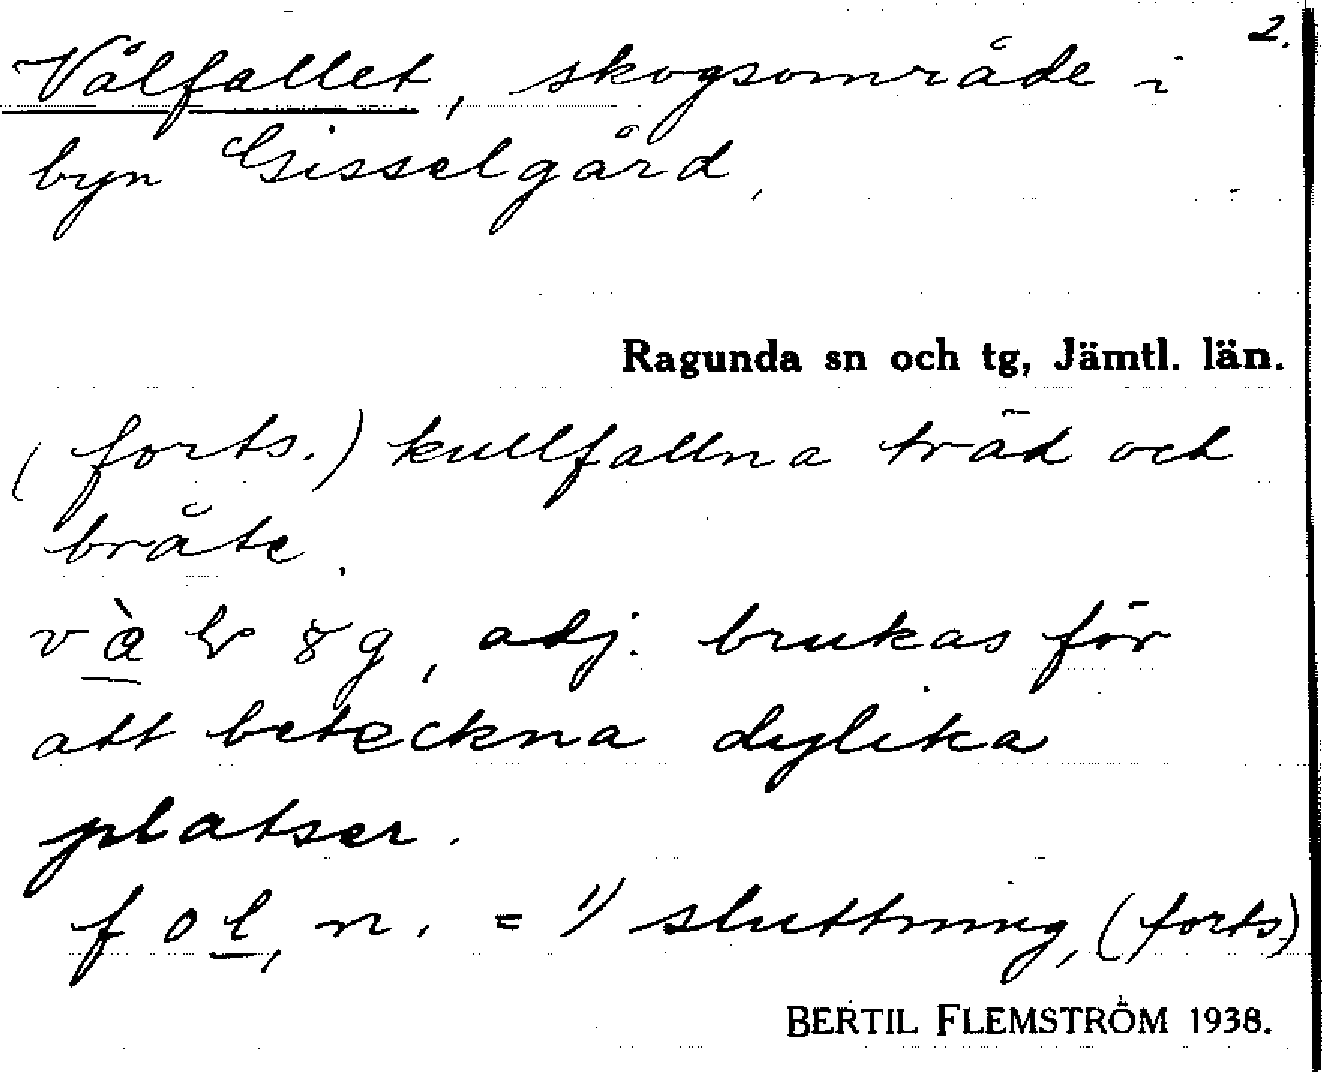 2.
Vålfallet, skogsområde i
byn Gisselgård.
Ragunda sn och tg, Jämtl. län.
(forts.) kullfallna träd och
bråte.
adj. brukas för
att beteckna dylika
platser.
fol, n. = 1) sluttning, (forts)
BERTIL FLEMSTRÖM 1938.